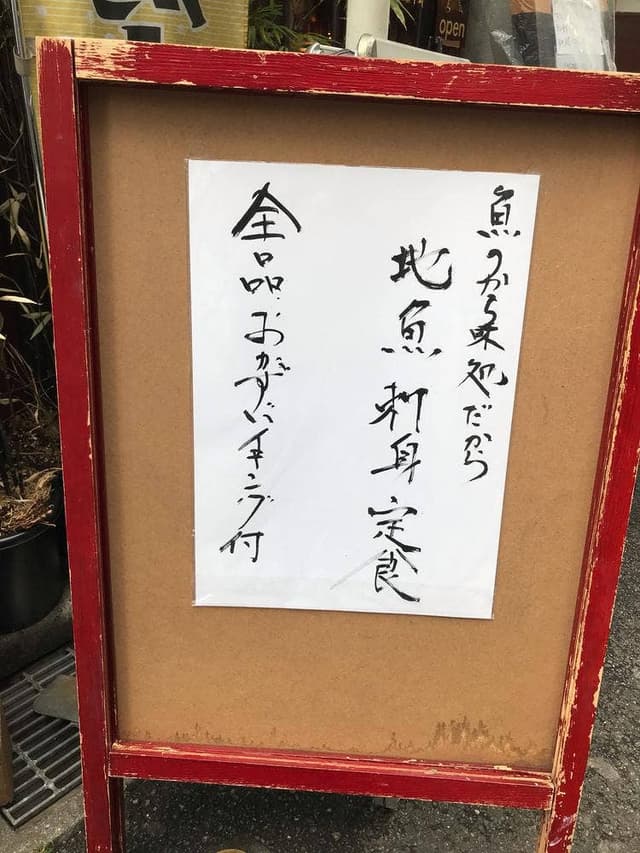 open
魚のから味処だから
地魚刺身定食
全品おかずバイキング付